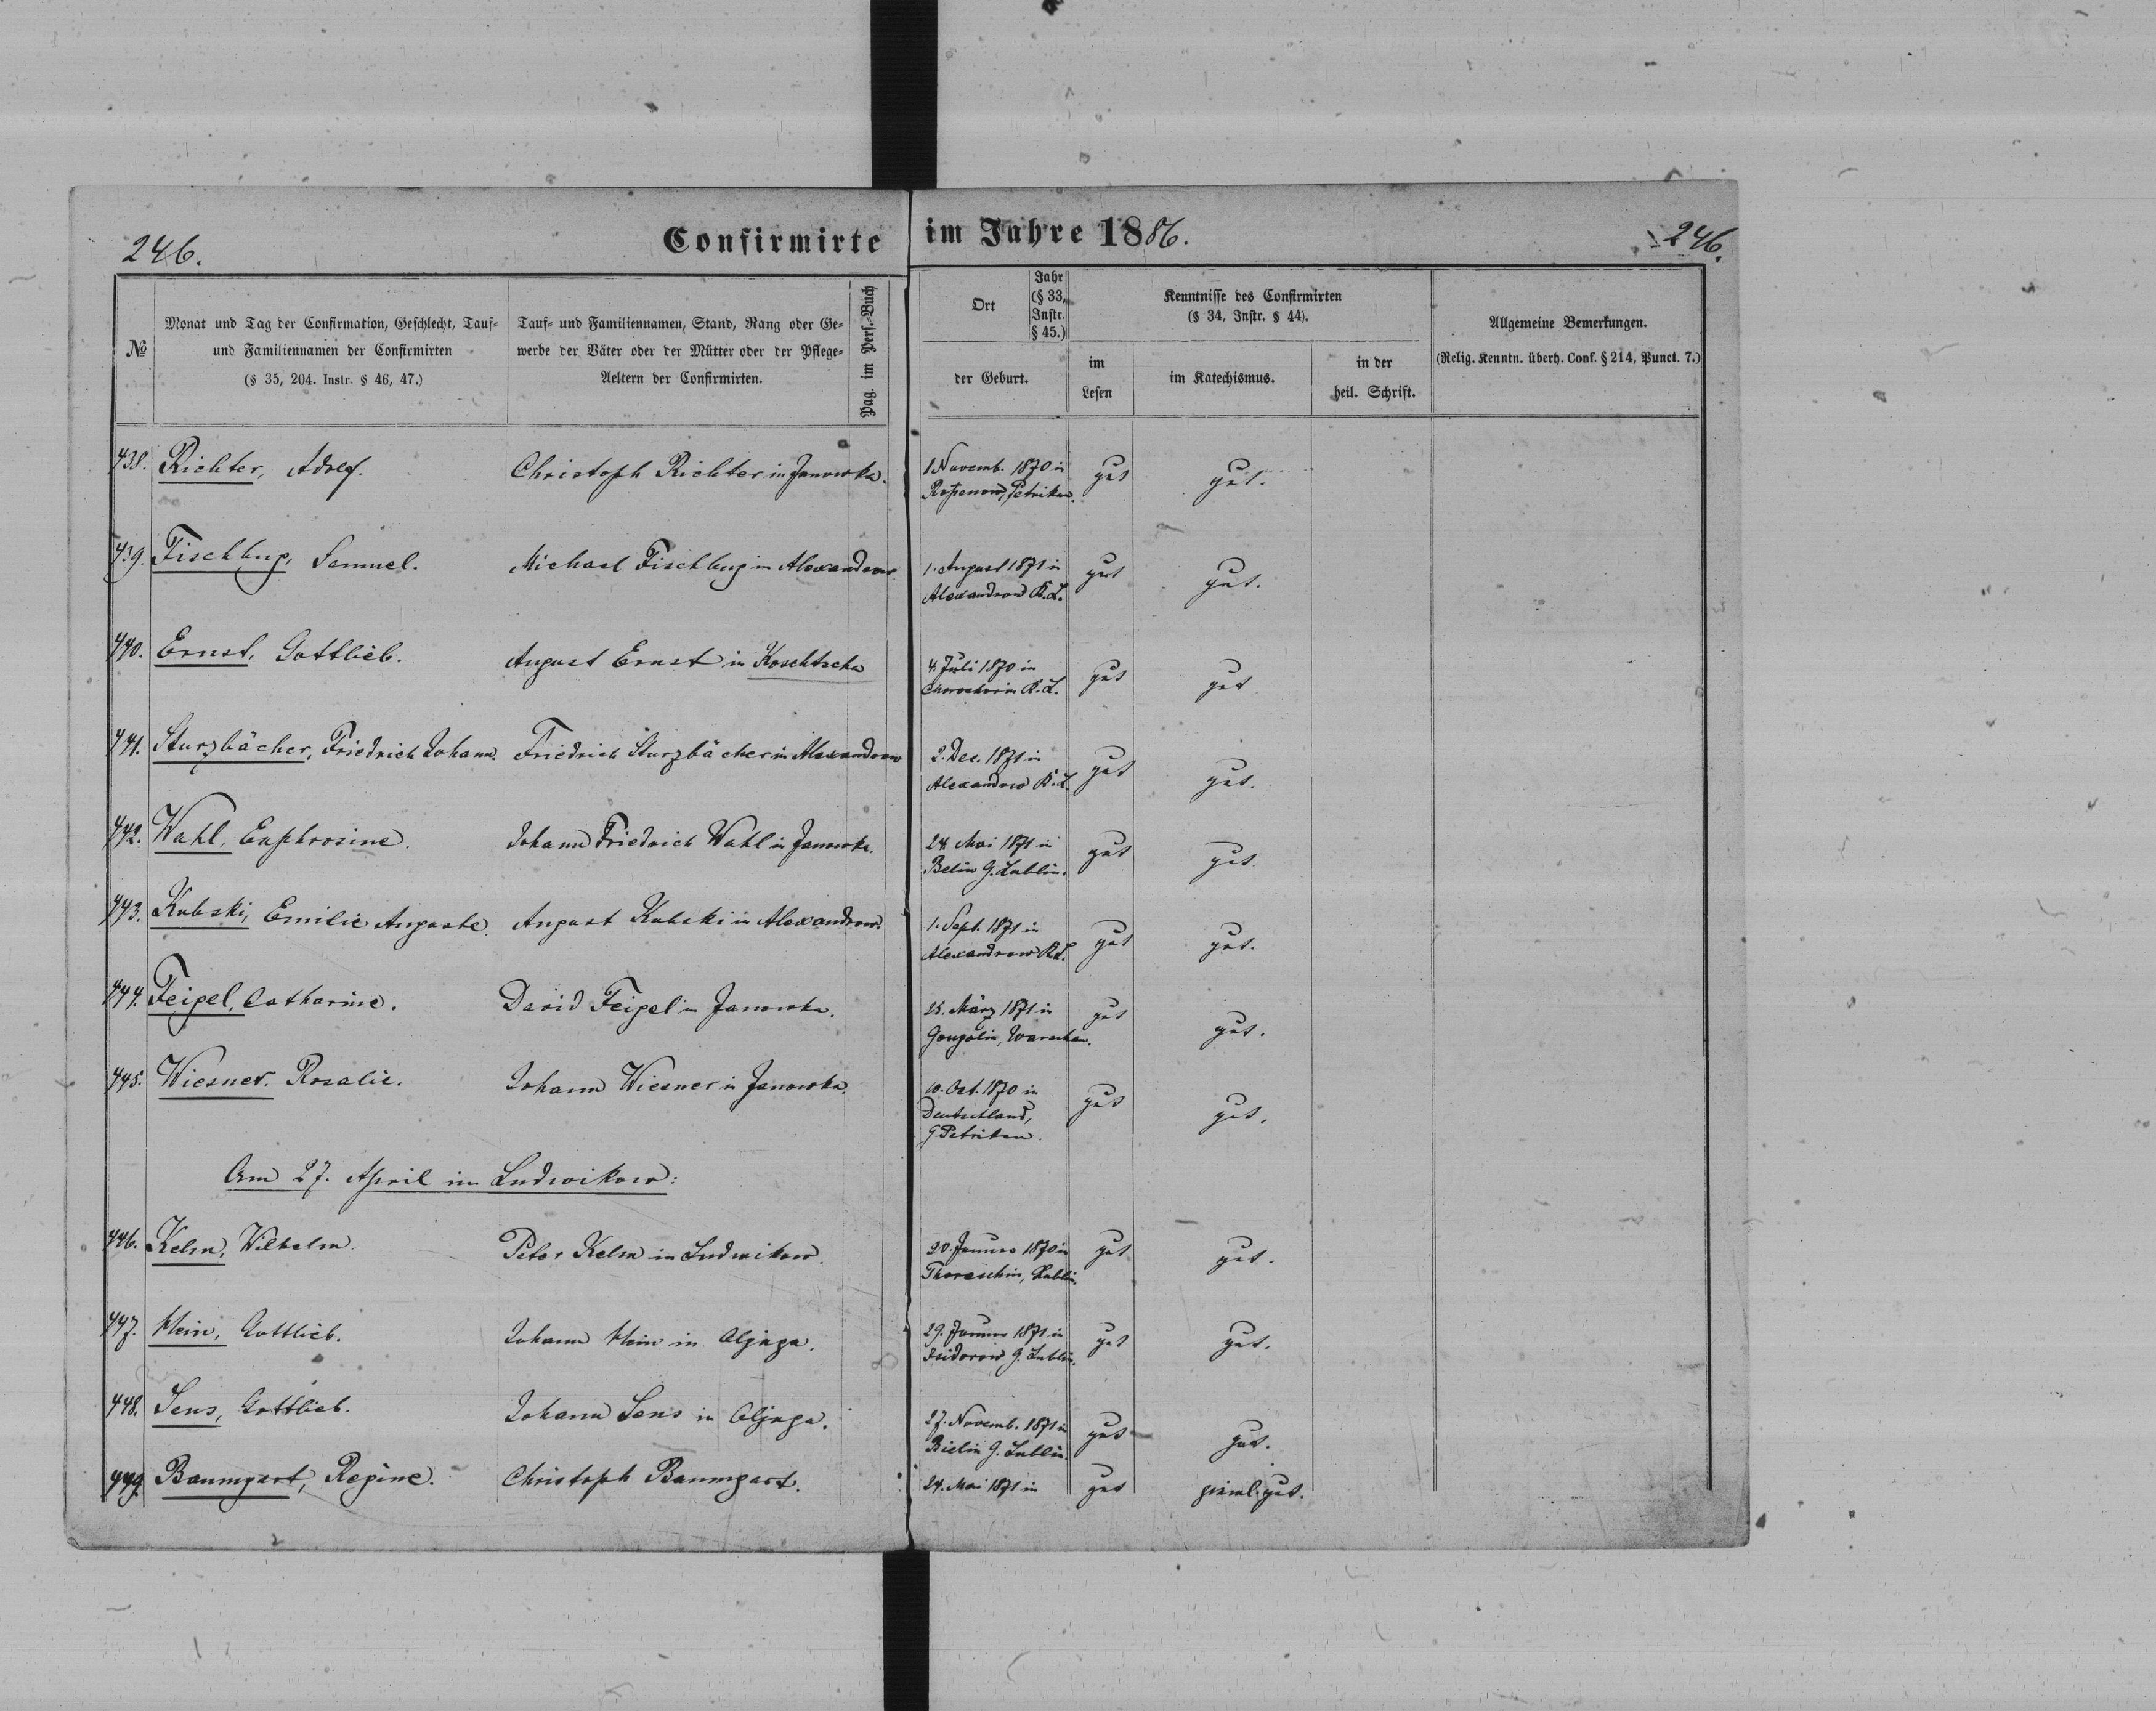 246.
Confirmirte im Jahre 1886.
246.
№
Monat und Tag der Confirmation, Geschlecht, Tauf-
und Familiennamen der Confirmirten
(§ 35, 204. Instr. § 46, 47.)
Tauf- und Familiennamen, Stand, Rang oder Ge-
werbe der Väter oder der Mütter oder der Pflege-
Aeltern der Confirmirten.
Pag. im Pers.-Buch
Ort
Jahr
(§ 33,
Instr.
§ 45.)
der Geburt.
Kenntnisse des Confirmirten
(§ 34, Instr. § 44).
im
Lesen
im Katechismus.
in der
heil. Schrift.
Allgemeine Bemerkungen.
(Relig. Kenntn. überh. Conf. § 214, Punct. 7.)
438. Richter, Adolf. Christoph Richter in Janowka. 1 Novemb. 1870 in gut gut.
Petrikau.
439. Fischbug, Samuel. Michael Fischbug in Alexandrow 1. August 1871 in gut gut.
Alexandrow K.L.
440. Ernst, Gottlieb. August Ernst in Koschtscha 4. Juli 1870 in gut gut
K.L.
441. Sturzbächer, Friedrich Johann. Friedrich Sturzbächer in Alexandrow 2. Dec. 1871 in gut gut.
Alexandrow K.L.
442. Wahl, Euphrosine. Johann Friedrich Wahl in Janowka. 24. Mai 1871 in gut gut
Belin G. Lublin.
443. Kubski, Emilie Auguste. August Kubski in Alexandrow. 1. Sept. 1871 in gut gut.
Alexandrow K.L.
444. Feigel, Catharine. David Feigel in Janowka. 25. März 1871 in gut gut.
Gongolin, Warschau.
445. Wiesner. Rosalie. Johann Wiesner in Janowka. 10. Oct. 1870 in gut gut.
Deutschland,
G Petrikau.
Am 27. April in Ludwikow:
446. Kelm, Wilhelm. Peter Kelm in Ludwikow. 20. Januar 1870 in gut gut.
Lublin.
447. Hein, Gottlieb. Johann Hein in Oljaga. 29. Januar 1871 in gut gut.
Isidorow G. Lublin.
448. Sens, Gottlieb. Johann Sens in Oljaga. 27. Novemb. 1871 in gut gut.
Bielin G. Lublin.
449. Baumgart, Regine. Christoph Baumgart. 24. Mai 1871 in gut zieml. gut.